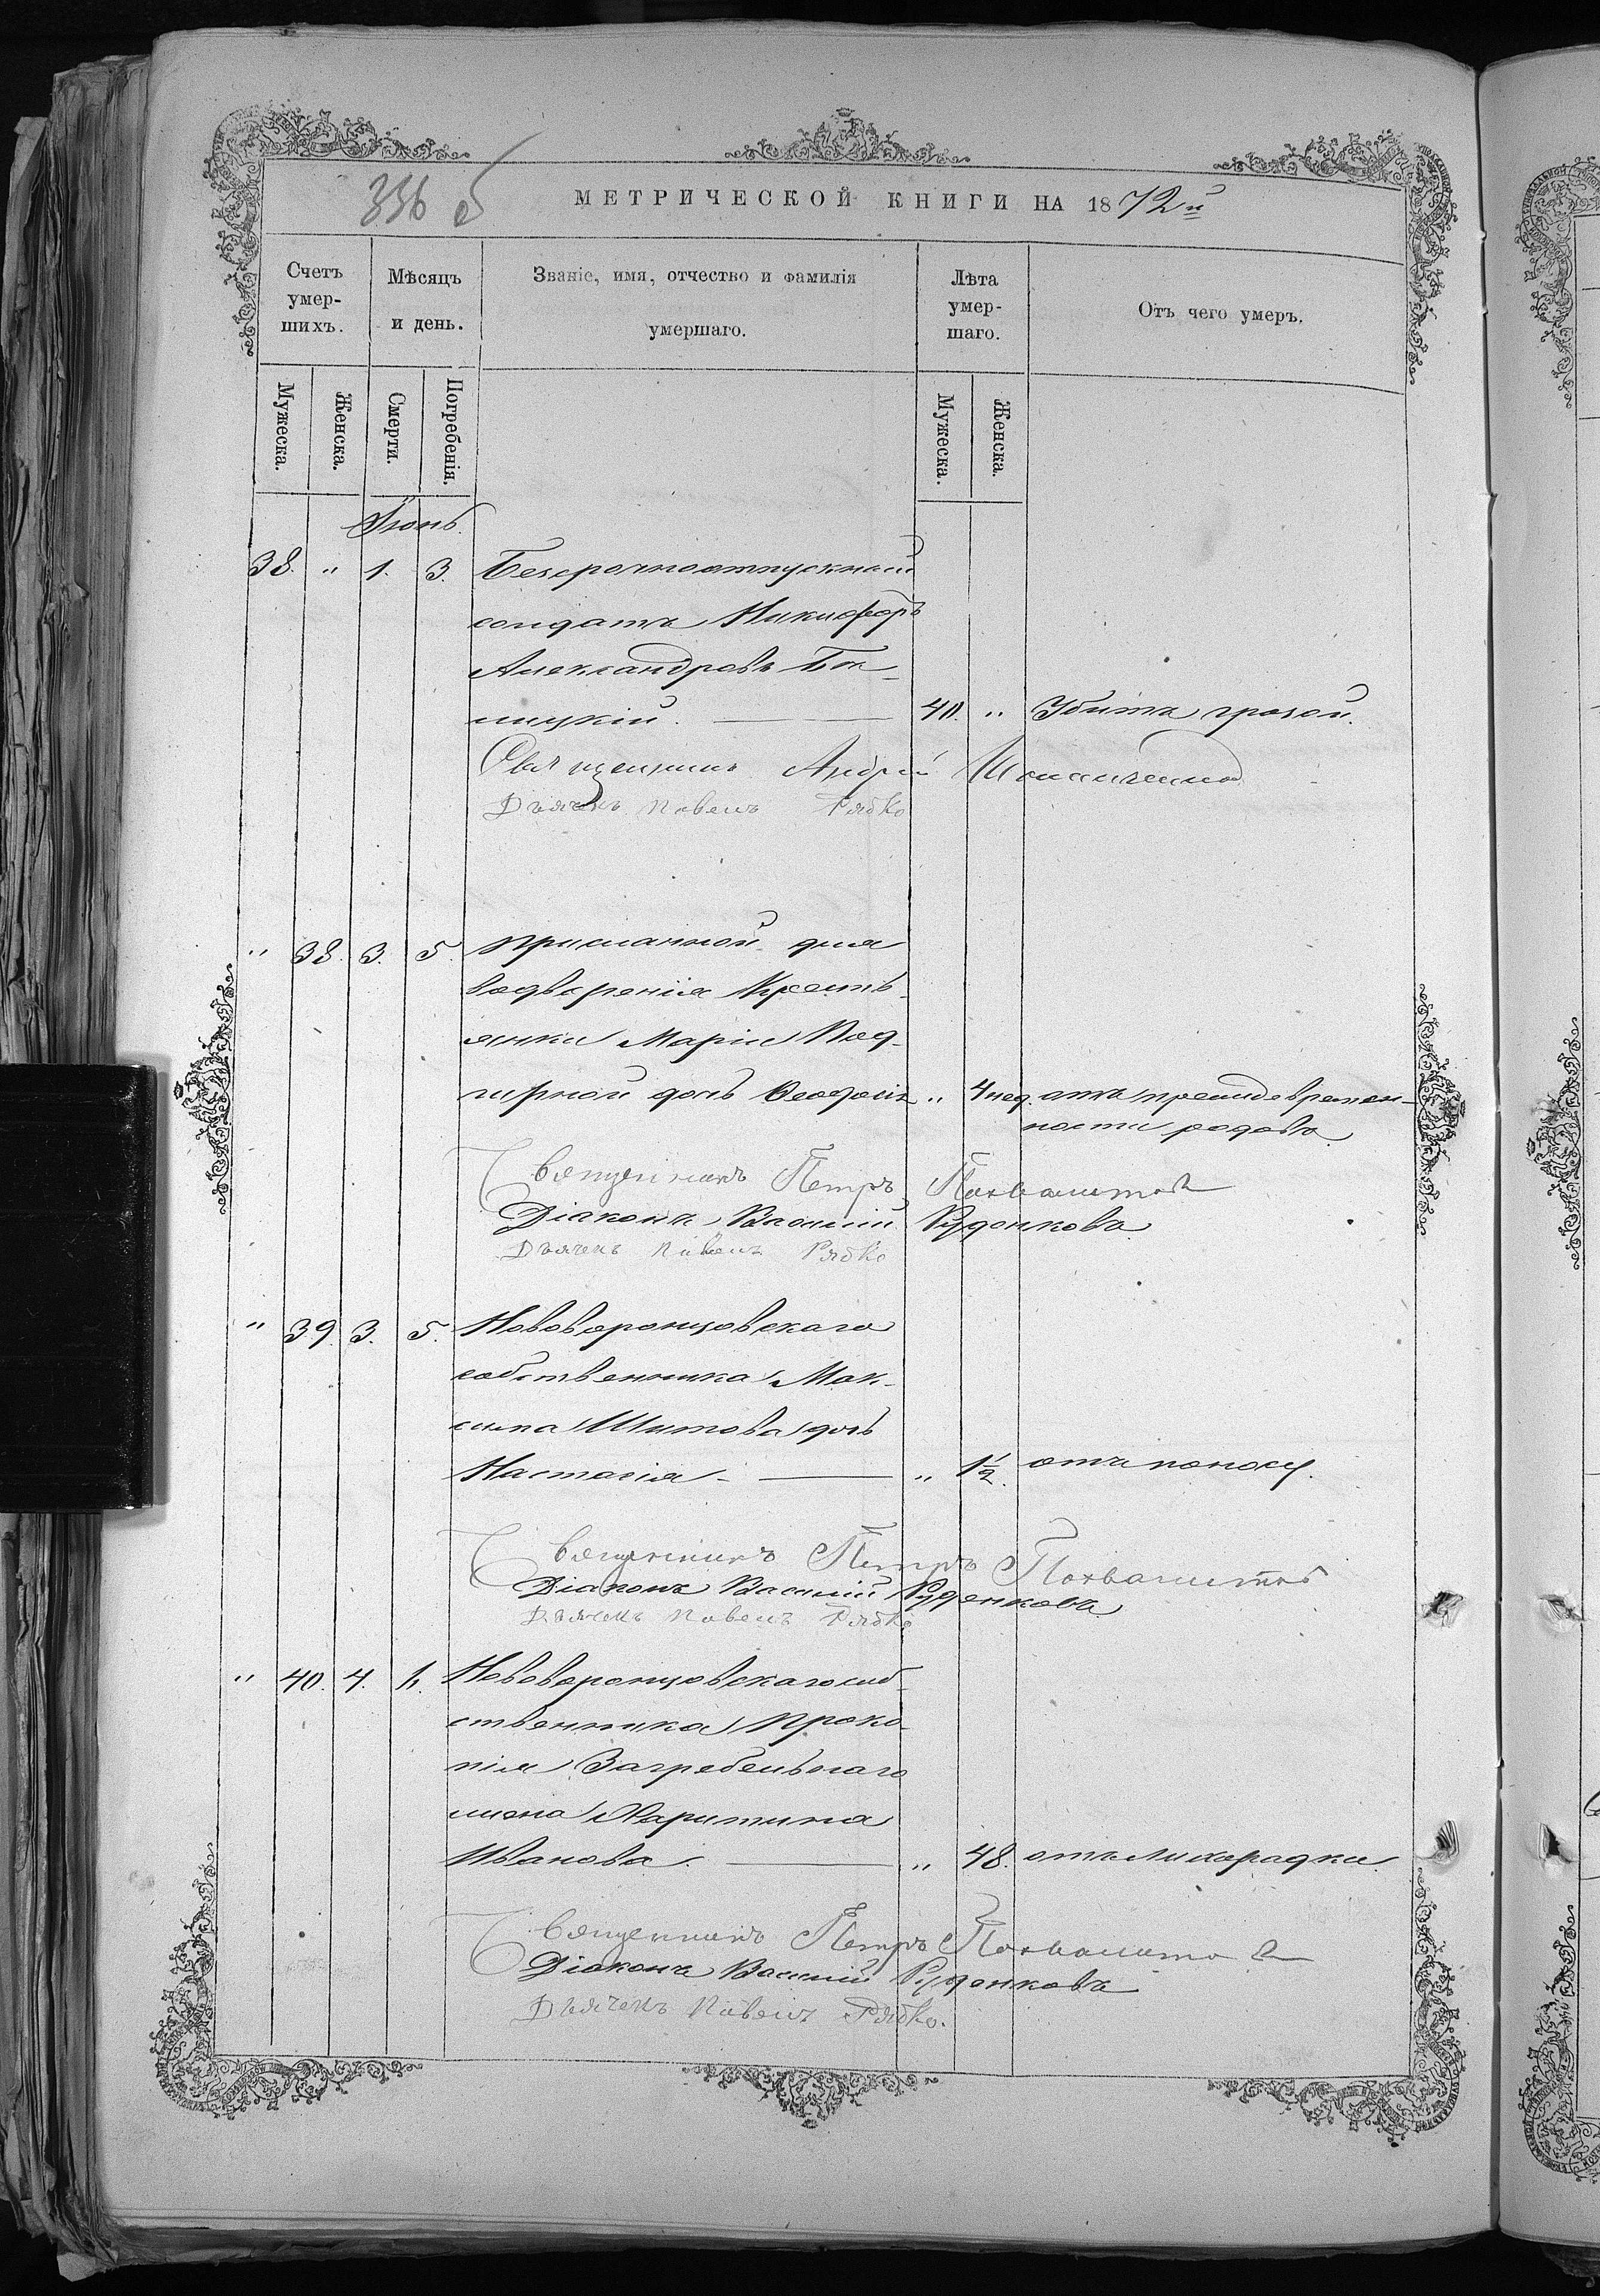 336 об
МЕТРИЧЕСКОЙ КНИГИ НА 1872й
Счетъ умер-шихъ.
Мѣсяцъ и день.
Званіе, имя, отчество и фамилія умершаго.
Лѣта умер-шаго.
Отъ чего умеръ.
Мужеска.
Женска.
Смерти.
Погребенія.
Мужеска.
Женска.
Іюнь.
38. " 1. 3. Безсрочноотпускный
солдатъ Никифоръ
Александровъ
40. " Убитъ грозой.
Священникъ Андрей
Дьячекъ Павелъ Рябко
" 38. 3. 5. Присланной для
водворенія Кресть-
янки Маріи Под-
дочь Ѳеодосія " 4 нед. отъ преждевремен-
ности родовъ
Священникъ Петръ Похвалитовъ
Діаконъ Василій Руденковъ
Дьячекъ Павелъ Рябко
" 39. 3. 5. Нововоронцовскаго
собственника Мак-
сима Шитова дочь
Настасія - " 1½. отъ поносу.
Священникъ Петръ Похвалитовъ
Діаконъ Василій Руденковъ
Дьячекъ Павелъ Рябко
" 40. 4. 6. Нововоронцовскаго соб-
ственника Проко-
пія Загребельнаго
жена Харитина
Иванова. " 48. отъ лихорадки.
Священникъ Петръ Похвалитовъ
Діаконъ Василій Руденковъ
Дьячекъ Павелъ Рябко.